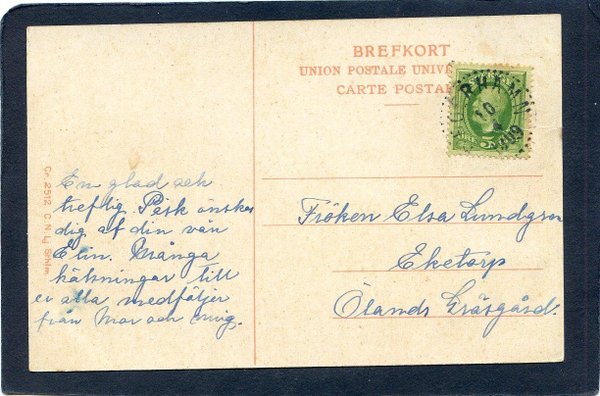 BREFKORT
UNION POSTALE UNIVE
CARTE POSTA
5
Cr. 2512 C. N:s Lj. Sthlm.
En glad och
treflig Påsk önskas
dig af din vän
Elin. Många
hälsningar till
er alla medföljer
från Mor och mig.
Fröken Elsa Lundgren
Eketorp
Ölands Gräsgård.